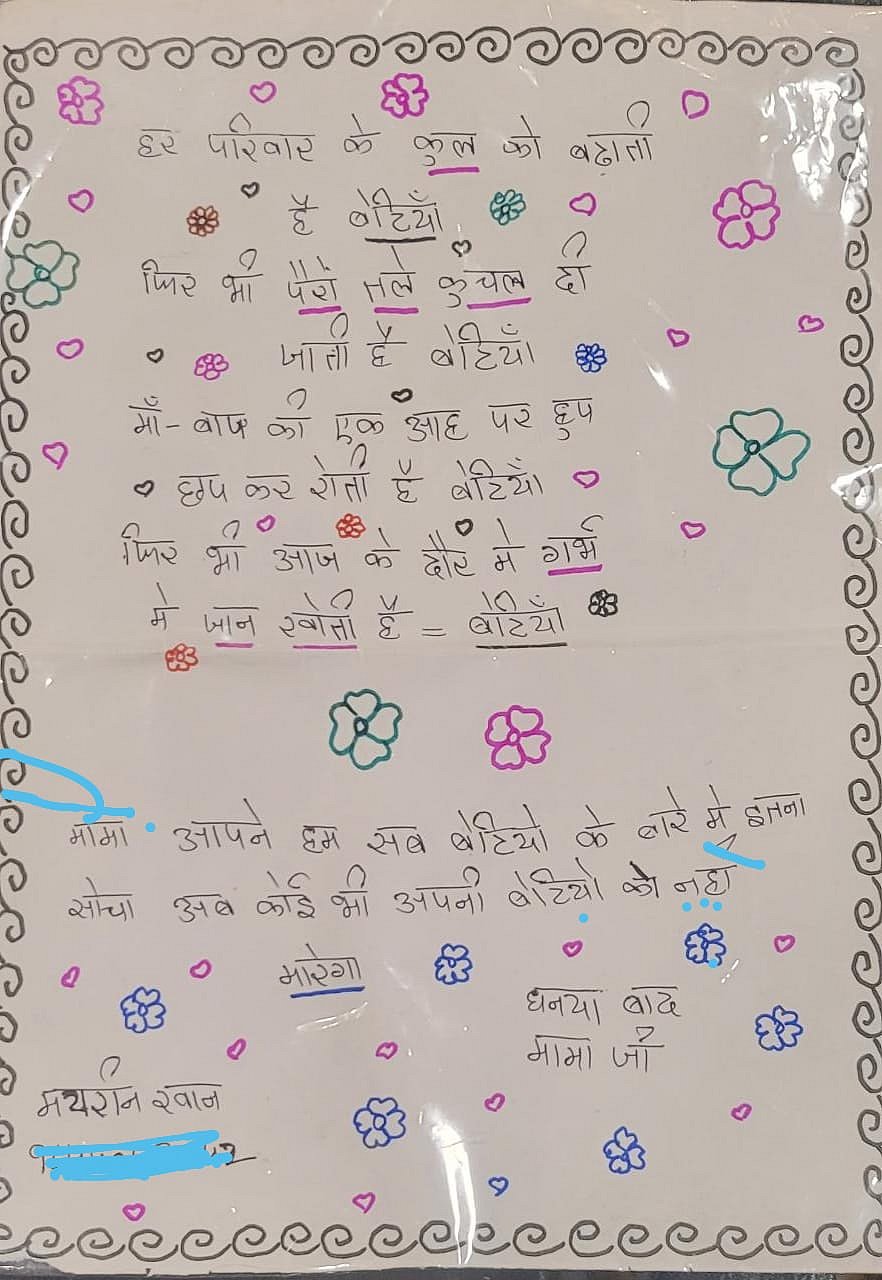 हर परिवार के कुल को बढ़ाती
है बेटियाँ
फिर भी पैरों तले कुचल दी
जाती है बेटियाँ
माँ-बाप की एक आह पर छुप
छुप कर रोती है बेटियाँ
फिर भी आज के दौर मे गर्भ
मे जान खोती है = बेटियाँ
मामा आपने हम सब बेटियो के बारे मे इतना
सोचा अब कोई भी अपनी बेटियो को नही
मारेगा
धनया बाद
मामा जी
खान